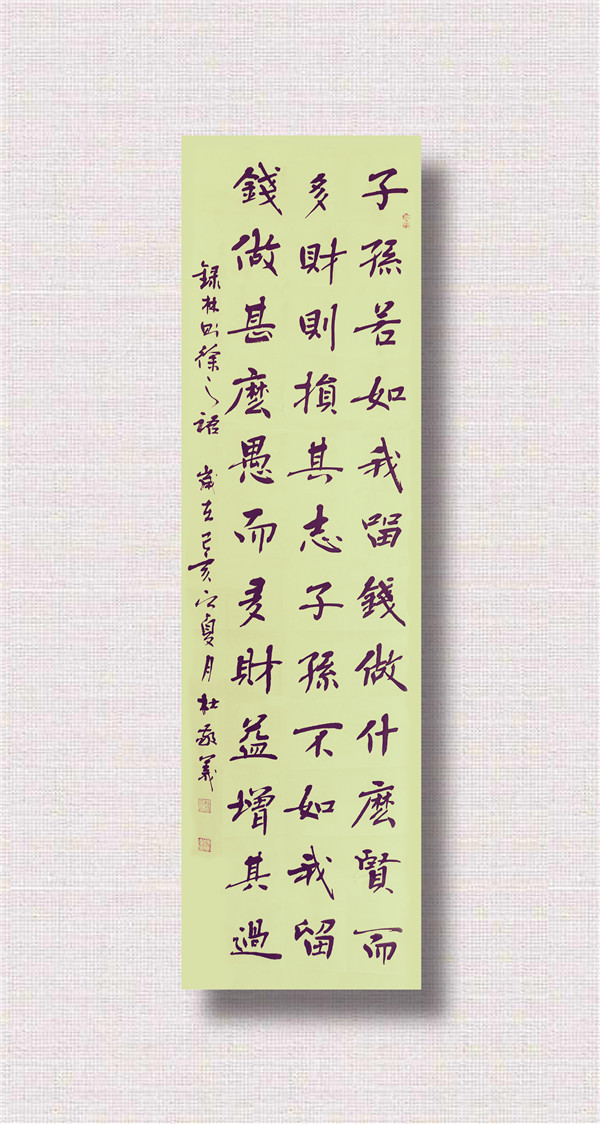 子孫若如我留錢做什麼賢而
多財則損其志子孫不如我留
錢做甚麼愚而多財益增其過
錄林則徐之語 歲在己亥夏月杜敬義